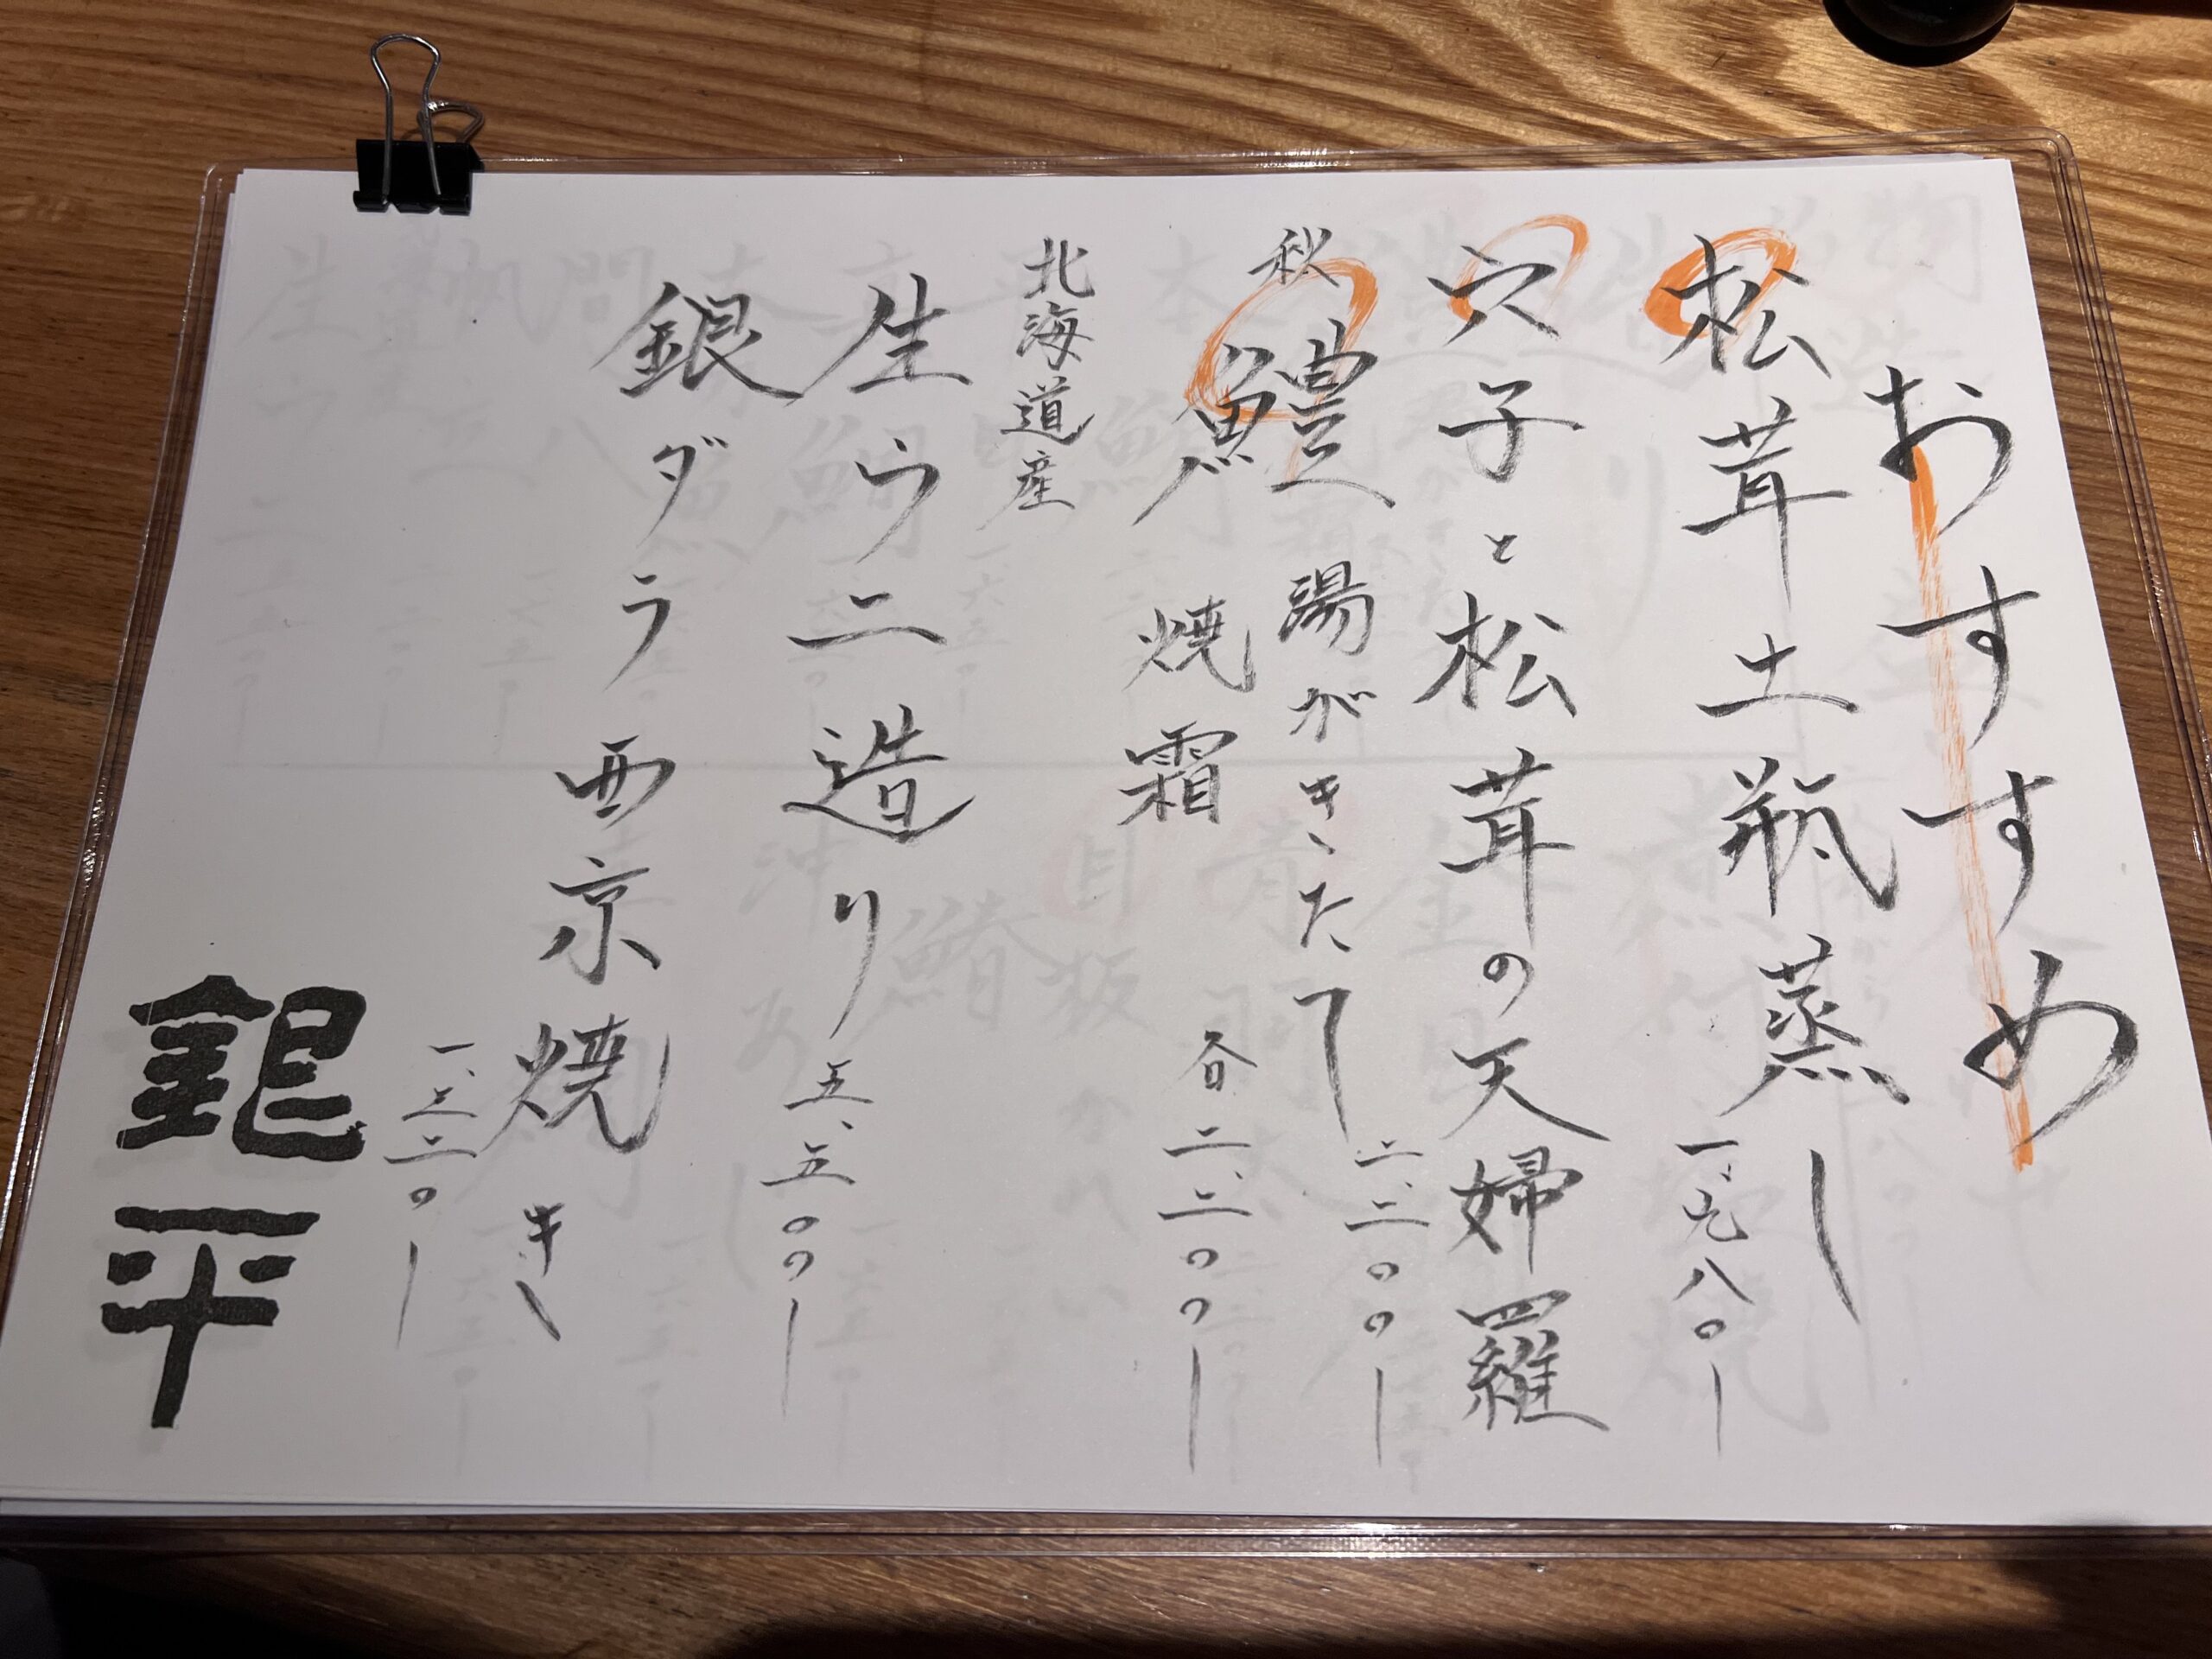 おすすめ
松茸土瓶蒸し
一、九八〇ー
穴子と松茸の天婦羅
二、二〇〇ー
秋
鱧
湯がきたて
焼霜
各二、二〇〇ー
北海道産
生ウニ造り
五、五〇〇ー
銀ダラ西京焼き
銀平